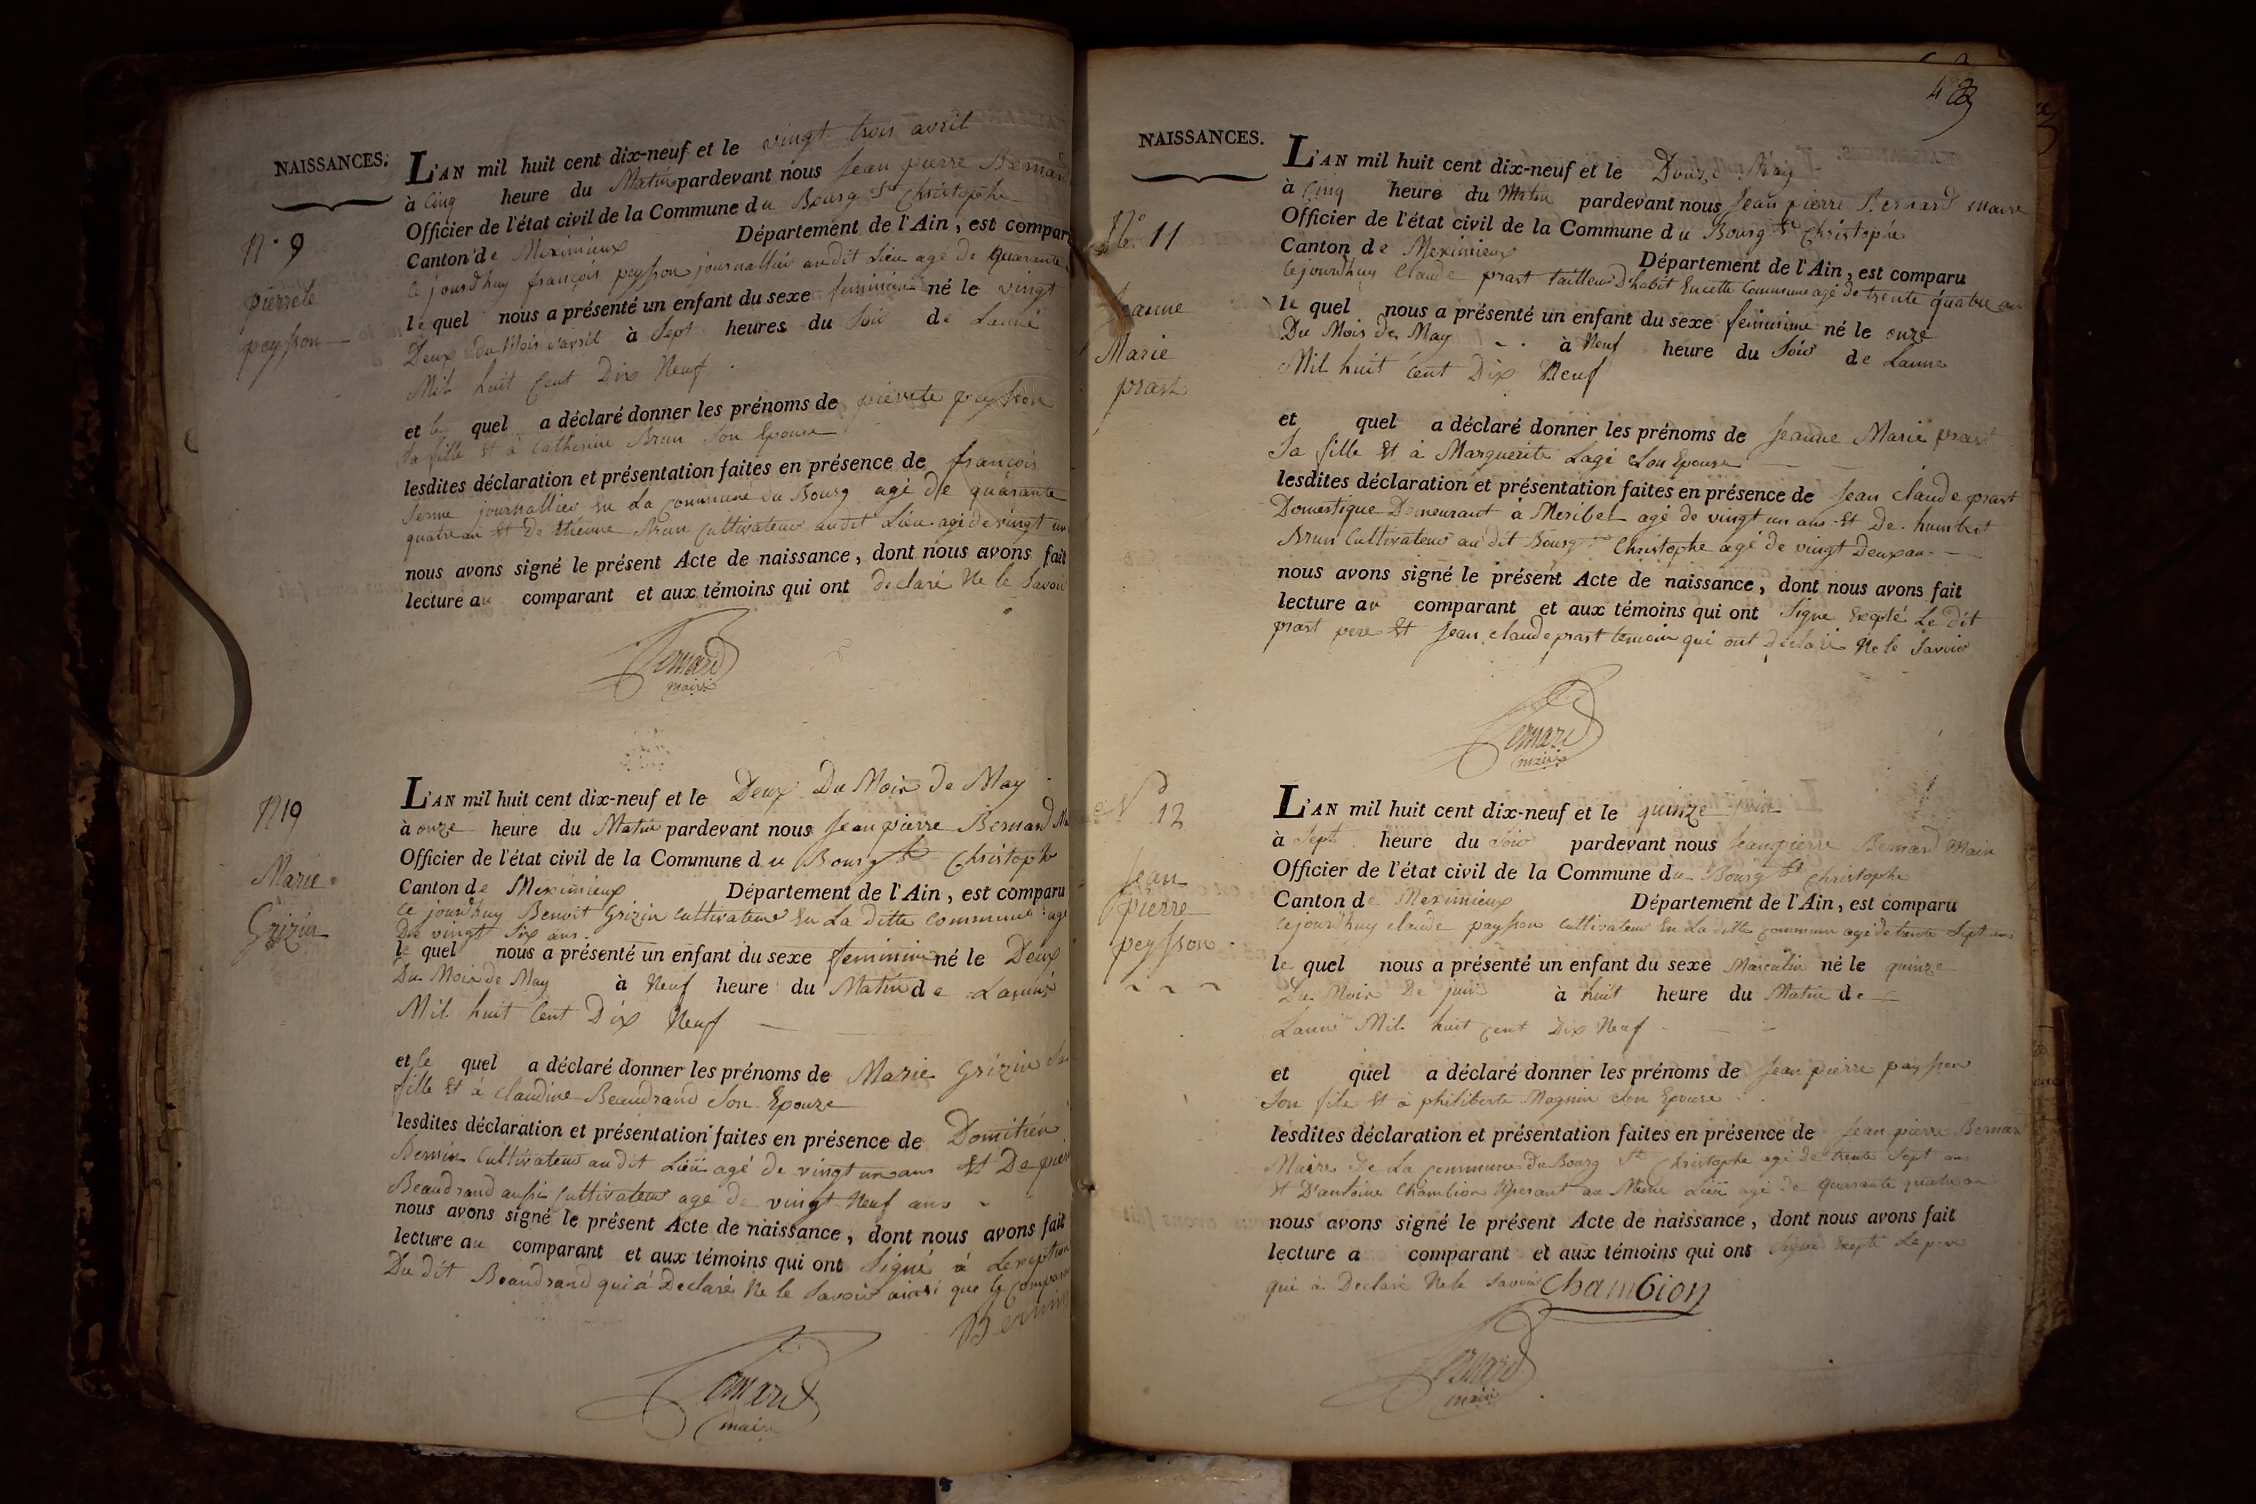 NAISSANCES.
N.º 9
pierrete
peysson
L'AN mil huit cent dix-neuf et le vingt trois avril
à Cinq heure du Matin pardevant nous Jean pierre Bernard
Officier de l'état civil de la Commune du Bourg St Christophe
Canton de Meximieux Département de l'Ain, est comparu
ce jourdhuy françois peysson journallier audit Lieu agé de quarante
le quel nous a présenté un enfant du sexe feminine né le vingt
Deux du Mois d'avril à Sept heures du Soir de Lanné
Mil huit Cent Dix Neuf
et le quel a déclaré donner les prénoms de pierrete peysson
Sa fille Et à Catherine Brun Son Epouse
lesdites déclaration et présentation faites en présence de françois
journallier en La Commune du Bourg agé de quarante
quatre an Et De Etienne Brun Cultivateur audit Lieu agé de vingt un
nous avons signé le présent Acte de naissance, dont nous avons fait
lecture au comparant et aux témoins qui ont declaré Ne le Savoir
Bernard
maire
N 10
Marie
Grizin
L'AN mil huit cent dix-neuf et le Deux Du Mois de May
à onze heure du Matin pardevant nous Jean pierre Bernard Ma
Officier de l'état civil de la Commune du Bourg St Christophe
Canton de Meximieux Département de l'Ain, est comparu
ce jourdhuy Benoit Grizin Cultivateur En La ditte Commune agé
De vingt Six ans
le quel nous a présenté un enfant du sexe feminine né le Deux
Du Mois de May à Neuf heure du Matin de Lanné
Mil huit Cent Dix Neuf
et le quel a déclaré donner les prénoms de Marie Grizin Sa
fille Et à Claudine Beaudrand Son Epouze
lesdites déclaration et présentation faites en présence de Domitien
Bernin Cultivateur audit Lieu agé de vingt un ans Et De pierre
Beaudrand aussi Cultivateur agé de vingt Neuf ans
nous avons signé le présent Acte de naissance, dont nous avons fait
lecture au comparant et aux témoins qui ont Signé à Lexeption
Du dit Beaudrand qui à Declaré Ne le Savoir ainsi que le Comparant
Bernin
Bernard
maire
NAISSANCES.
Nº. 11
Jeanne
Marie
prast
L'AN mil huit cent dix-neuf et le Douze May
à Cinq heure du Matin pardevant nous Jean pierre Bernard maire
Officier de l'état civil de la Commune du Bourg St Christophe
Canton de Meximieux Département de l'Ain, est comparu
ce jourdhuy Claude prast tailleur D'habit En cette Commune agé de trente quatre an
le quel nous a présenté un enfant du sexe feminine né le onze
Du Mois de May à Neuf heure du Soir de Lanné
Mil huit Cent Dix Neuf
et quel a déclaré donner les prénoms de Jeanne Marie prast
Sa fille Et à Marguerite Lagé Son Epouse
lesdites déclaration et présentation faites en présence de Jean Claude prast
Domestique Demeurant à Meribel agé de vingt un ans Et De humbert
Brun Cultivateur au dit Bourg St Christophe agé de vingt Deux an
nous avons signé le présent Acte de naissance, dont nous avons fait
lecture au comparant et aux témoins qui ont Signe Exepté Le dit
prast pere Et Jean Claude prast temoin qui ont Déclaré Ne le Savoir
Bernard
maire
Nº 12
Jean
pierre
peysson
L'AN mil huit cent dix-neuf et le quinze juin
à Sept heure du Soir pardevant nous Jean pierre Bernard Maire
Officier de l'état civil de la Commune du Bourg St Christophe
Canton de Meximieux Département de l'Ain, est comparu
ce jourdhuy claude peysson Cultivateur En La ditte commune agé de trente Sept ans
le quel nous a présenté un enfant du sexe Masculin né le quinze
Du Mois De juin à huit heure du Matin de
Lanné Mil huit cent Dix Neuf
et quel a déclaré donner les prénoms de Jean pierre peysson
Son fils Et à philiberte Magnin Son Epouse
lesdites déclaration et présentation faites en présence de Jean pierre Bernard
Maire De La commune du Bourg St Christophe agé de trente Sept ans
Et D'antoine Chambion au Meme Lieu agé de quarante quatre an
nous avons signé le présent Acte de naissance, dont nous avons fait
lecture a comparant et aux témoins qui ont Signé Exepté Le pere
qui à Declaré Ne le Savoir Chambion
Bernard
maire